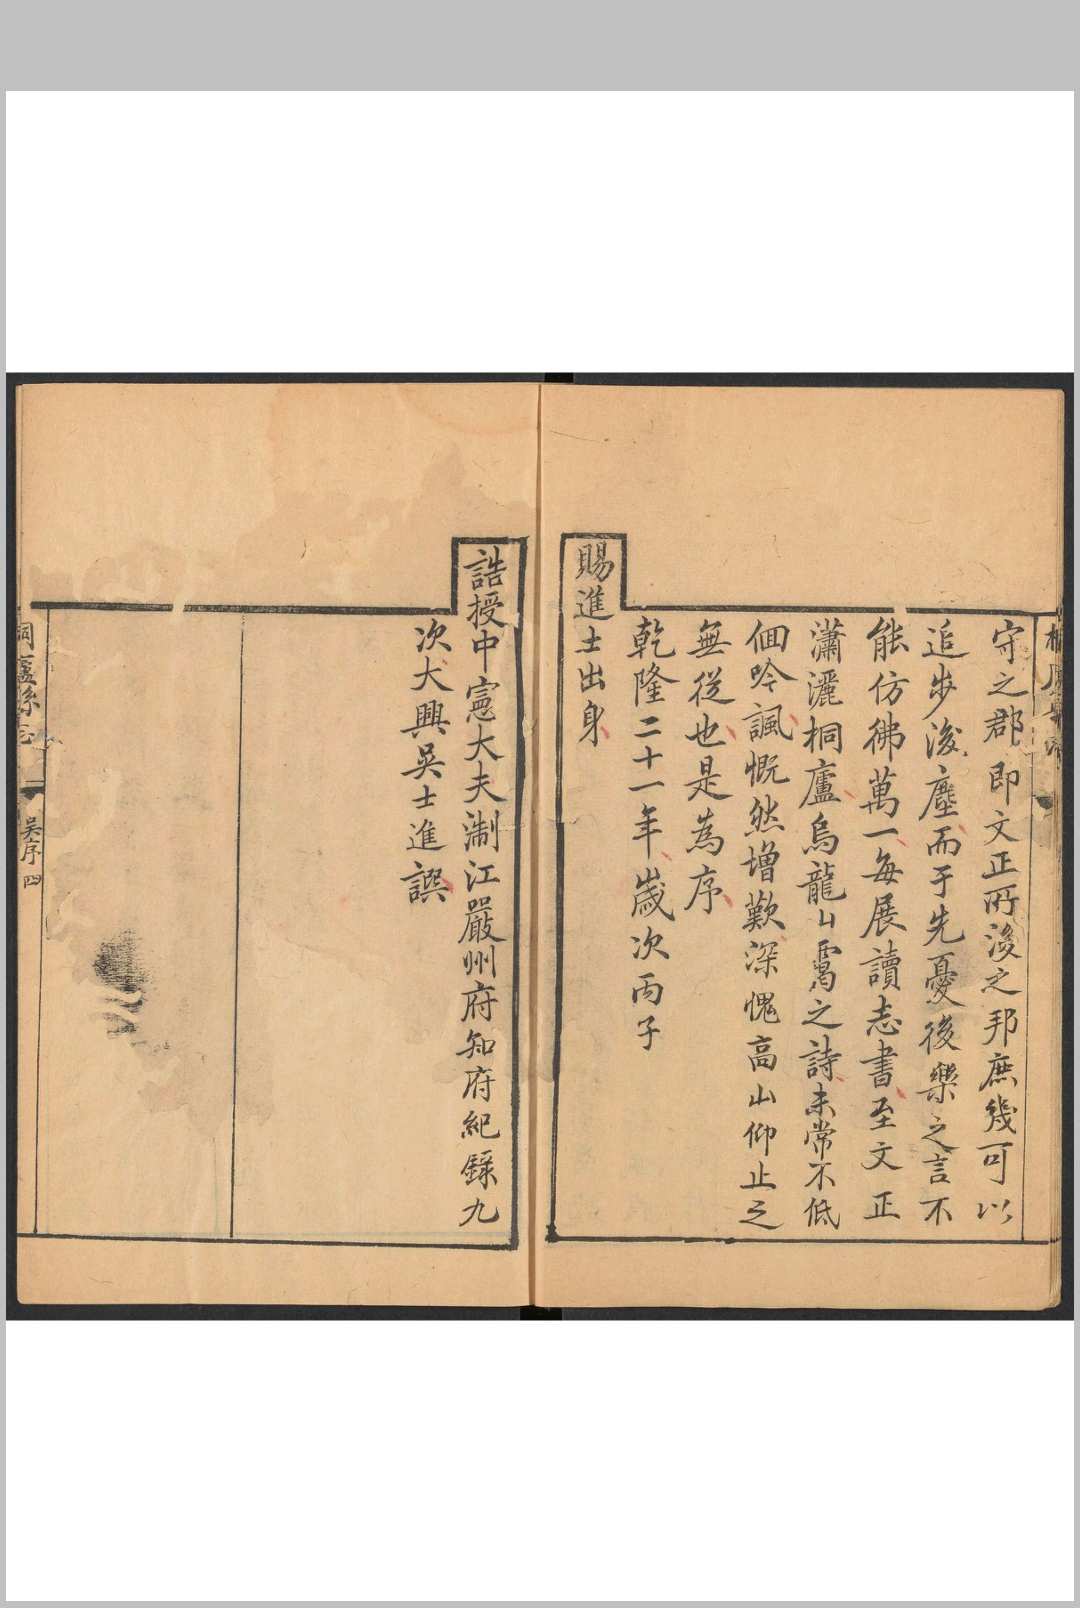 守之郡即文正所後之邦庶幾可以
追步後塵而于先憂後樂之言不
能仿彿萬一每展讀志書至文正
瀟灑桐廬烏龍山靄之詩未常不低
佪吟諷慨然增歎深愧高山仰止之
無從也是為序
乾隆二十一年歲次丙子
賜進士出身
誥授中憲大夫淛江嚴州府知府紀錄九
次大興吳士進譔
桐廬縣志
吳序
四